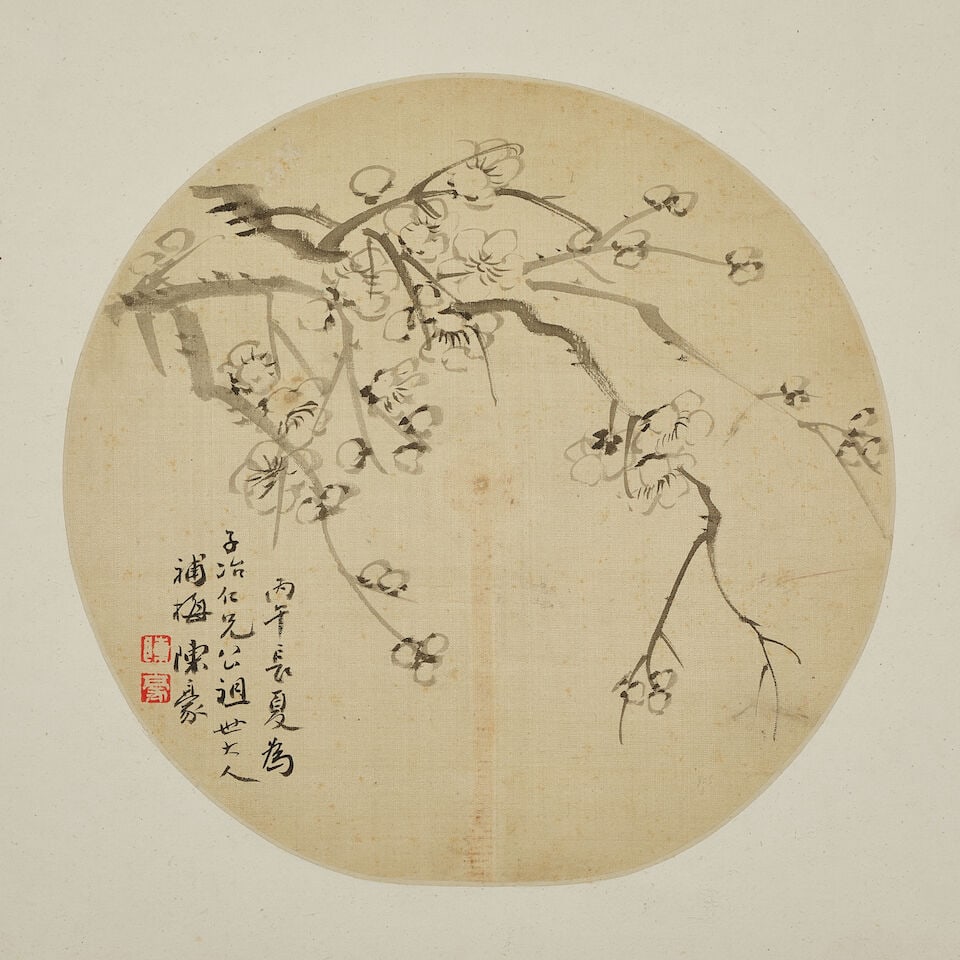 丙午長夏為
子冶仁兄公祖世大人
補梅 陳豪
陳
豪